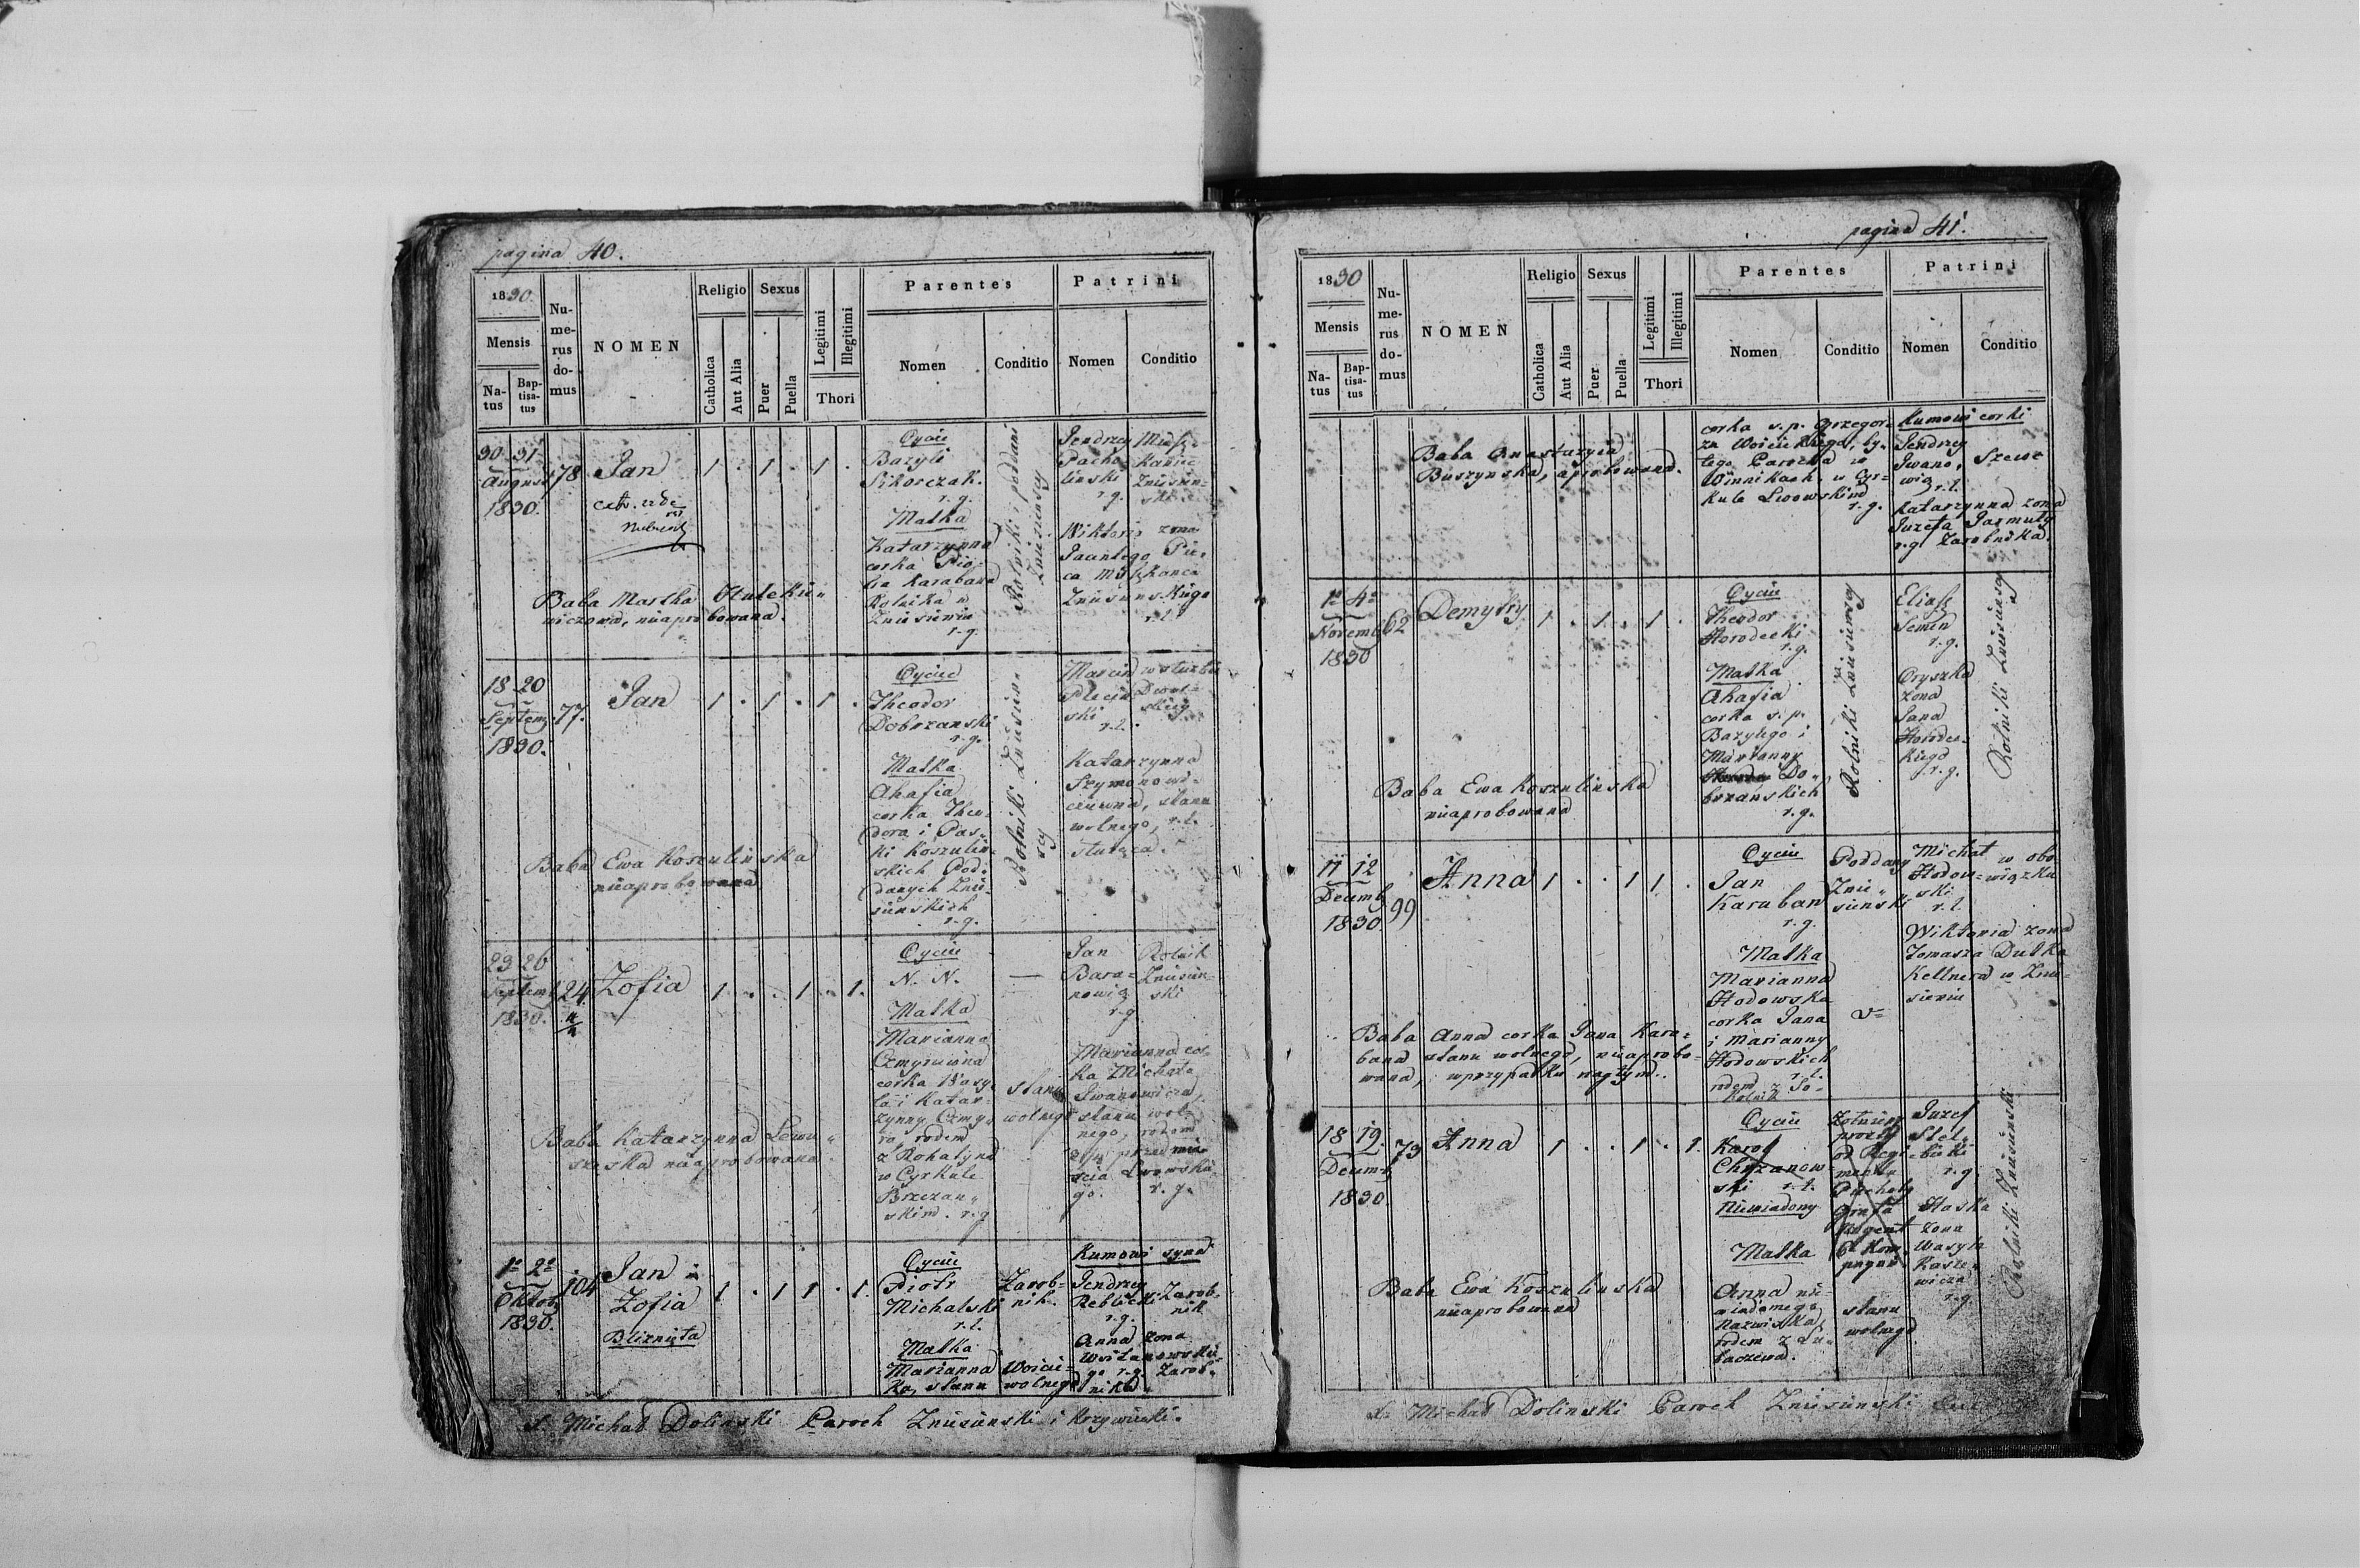 pagina 40.
1830.
Mensis
Na-
tus
Bap-
tisa-
tus
Nu-
me-
rus
do-
mus
NOMEN
Religio
Catholica
Aut Alia
Sexus
Puer
Puella
Legitimi
Illegitimi
Thori
Parentes
Nomen
Conditio
Patrini
Nomen
Conditio
30 31
August
1830.
78
Jan
1 . 1 . 1 .
Oyciec
Bazyli
Sikorczak.
r. g.
Matka
Katarzynna
corka Pio-
tra Karabana
Rolnika w
Zniesieniu
r. g.
Rolniki i poddani
Zniesienscy
Jendrzey
Pacho-
linski
r. g.
Miesz-
kaniec
Zniesien-
ski
Wiktoria zona
Pie-
ca Mieszkanca
Zniesienskiego
r. l.
Baba Martha
niczowa, nieaprobowana.
18 20
Septem
1830.
77.
Jan
1 . 1 . 1 .
Oyciec
Theodor
Dobrzanski
r. g.
Matka
Ahafia
corka Theo-
dora i Pas-
ki Koszulin-
skich Pod-
danych Znie-
sienskich
r. g.
Rolniki Zniesien-
scy
Marcin
ski
r. l.
w sluzbie
Dwor-
skiey
Katarzynna
Szymonowi-
czowna, stanu
wolnego, r. l.
sluząca.
Baba Ewa Koszulinska
nieaprobowana
23 26
Septem
1830.
124
Zofia
1 . . 1 . 1.
Oyciec
N. N.
Matka
Marianna
Czmyrowna
corka Wasy-
la i Katar-
zynny Czmy-
ro, rodem
z Rohatyna
w Cyrkule
Brzezan-
skim. r. g.
stanu
wolnego
Jan
Bara-
nowicz
r. g.
Rolnik
Zniesien-
ski
Marianna cor-
ka Michala
Iwanowicza,
stanu wol-
nego, rodem
z przedmie-
scia Lwowskie-
go. r. g.
Baba Katarzynna Lewu-
szeska nieaprobowana.
1º 2º
Oktob
1830.
104
Jan i
Zofia
Bliznięta
1 . 1 1 . 1.
Oyciec
Piotr
Michalski
r. l.
Zarob-
nik.
Matka
Marianna Woici-
ka, stanu wolnego
Kumowi syna
Jendrzey
Reblicki
r. g.
Zarob-
nik
Anna zona
Woitanowskie-
go r. g. Zarob-
nika.
X. Michał Dolinski Paroch Zniesienski i Krzywiecki.
pagina 41.
1830
Mensis
Na-
tus
Bap-
tisa-
tus
Nu-
me-
rus
do-
mus
NOMEN
Religio
Catholica
Aut Alia
Sexus
Puer
Puella
Legitimi
Illegitimi
Thori
Parentes
Nomen
Conditio
Patrini
Nomen
Conditio
Baba Anastazyia
Buszynska, aprobowana.
corka s. p. Grzegor-
za Woicickiego, by-
lego Parocha w
Winnikach, w Cyr-
kule Lwowskim
r. g.
Kumowi corki
Jendrzey
Iwano-
wicz
r. l.
Szewc
Katarzynna zona
Juzefa Jarmuty
r. g. Zarobnika.
1º 4º
Novemb
1830
62
Demytry
1 . 1 . 1 .
Oyciec
Theodor
Horodecki
r. g.
Matka
Ahafia
corka s. p.
Bazylego i
Marianny
Do-
brzanskich
r. g.
Rolniki Zniesienscy
Eliasz
Semen
r. g.
Oryszka
zona
Jana
Horodec-
kiego
r. g.
Rolniki Zniesienscy
Baba Ewa Koszulinska
nieaprobowana
11 12
Decemb
1830
99
Anna
1 . . 1 1 .
Oyciec
Jan
Karaban
r. g.
Poddany
Znie-
sienski
Matka
Marianna
Hodowska
corka Jana
i Marianny
Hodowskich
r. l.
Michał
Hodow-
ski
r. l.
w obo-
wiązku
Wiktoria zona
Tomasza Dutka
Kellnera w Znie-
sieniu
Baba Anna corka Jana Kara-
bana stanu wolnego, nieaprobo-
wana, wprzypatku nagłym.
18 19
Decemb
1830.
73
Anna
1 . . 1 . 1.
Oyciec
Karol
Chrzanow-
ski r. l.
Niewiadomy
Zołnierz
prosty
od Regi-
mentu
Matka
Anna nie-
wiadomego
nazwiska,
rodem z Lu-
baczewa.
stanu
wolnego
Juzef
Stel-
bicki
r. g.
Haska
zona
Wasyla
Kasze-
wicza
r. g.
Rolniki Zniesienski
Baba Ewa Koszulinska
nieaprobowana
X. Michał Dolinski Paroch Zniesienski